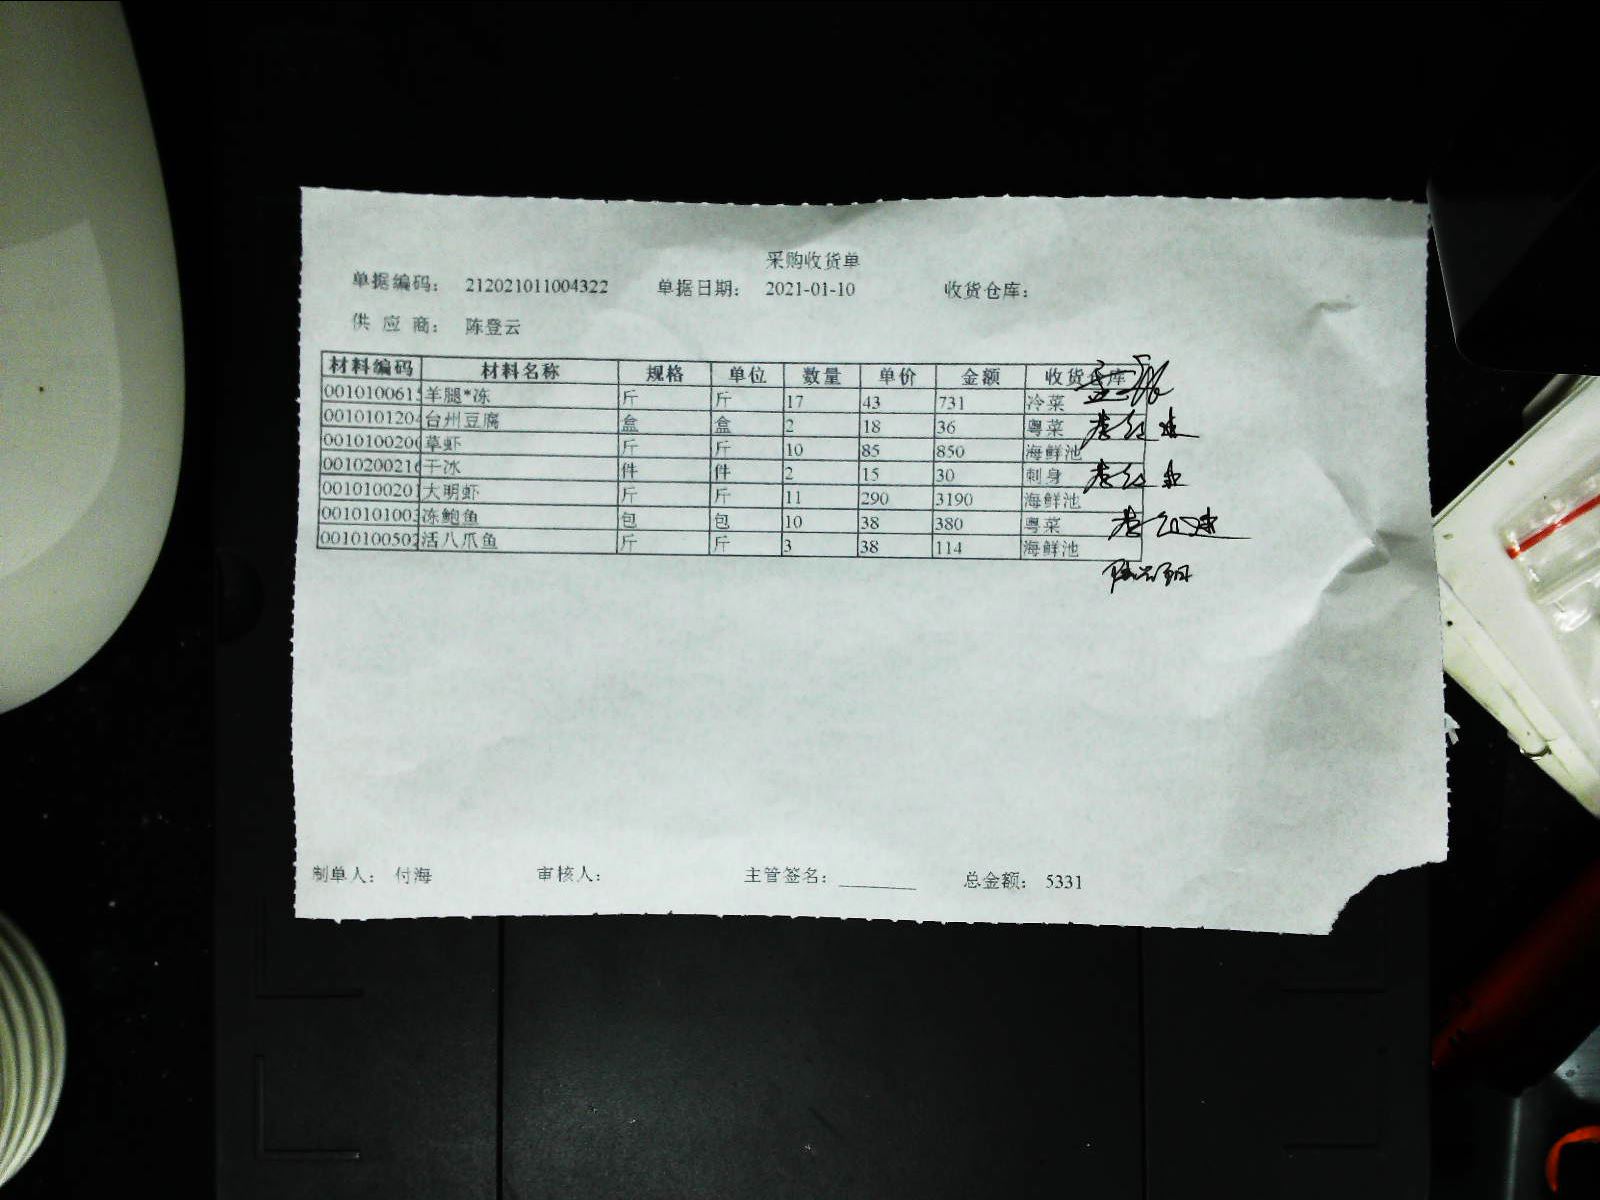 采购收货单
单据编码： 212021011004322 单据日期： 2021-01-10 收货仓库：
供 应 商： 陈登云
材料编码 材料名称 规格 单位 数量 单价 金额 收货仓库
001010061 羊腿*冻 斤 斤 17 43 731 冷菜
001010120 台州豆腐 盒 盒 2 18 36 粤菜
001010020 草虾 斤 斤 10 85 850 海鲜池
001020021 干冰 件 件 2 15 30 刺身
001010020 大明虾 斤 斤 11 290 3190 海鲜池
001010100 冻鲍鱼 包 包 10 38 380 粤菜
001010050 活八爪鱼 斤 斤 3 38 114 海鲜池
制单人： 付海 审核人： 主管签名： 总金额： 5331